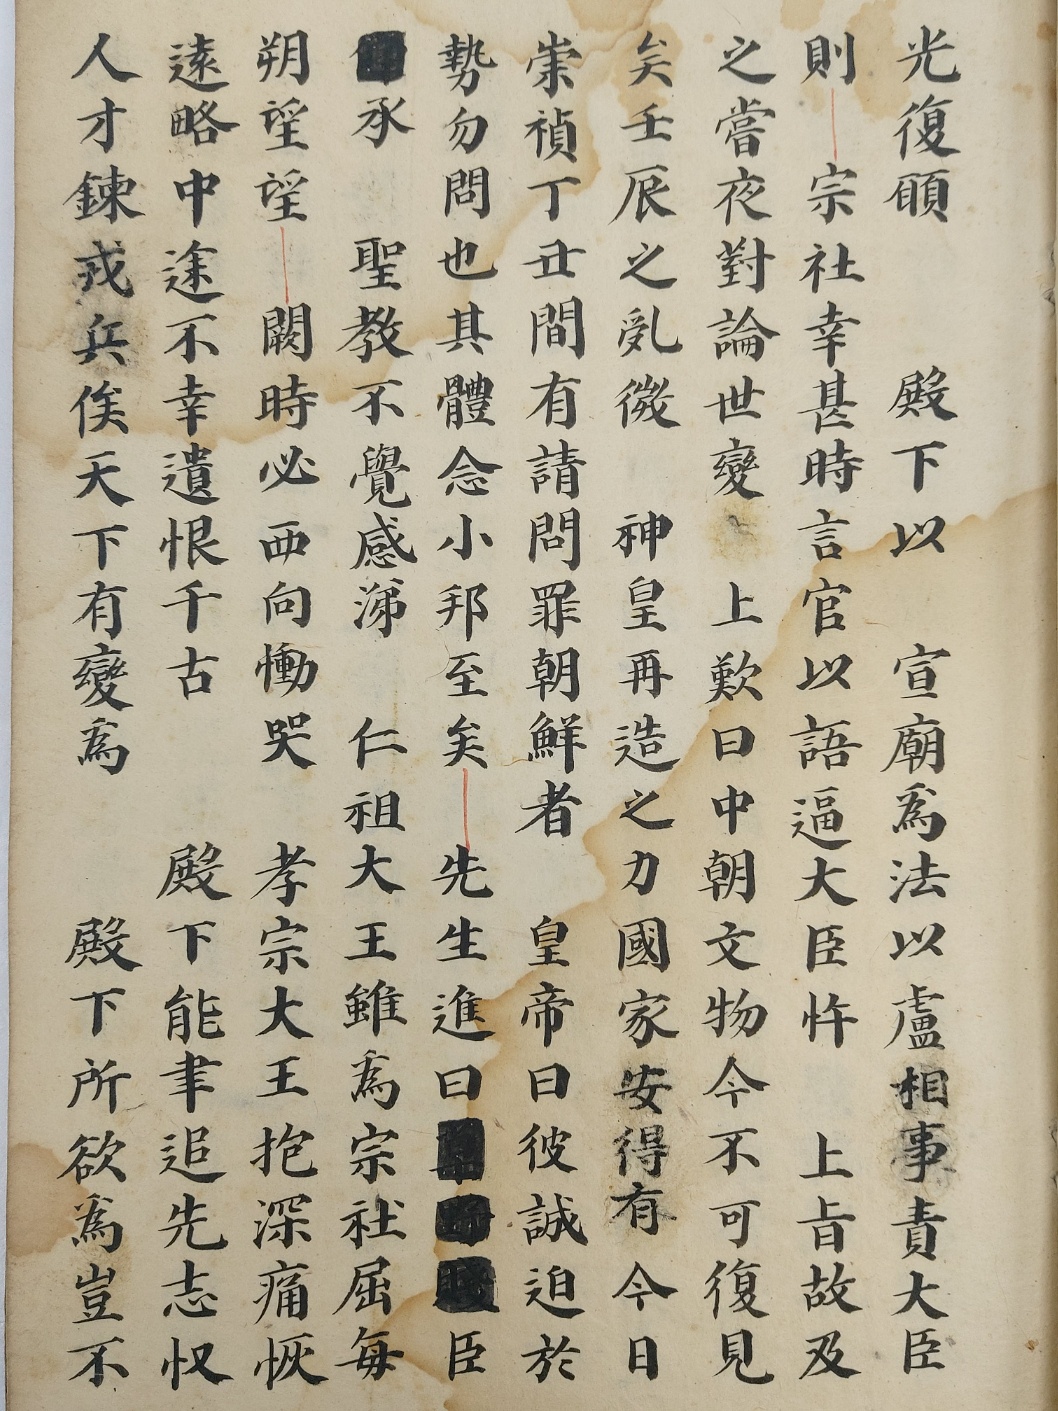 光復願　　殿下以　宣廟爲法以盧相事責大臣
則　宗社幸甚時言官以語逼大臣忤　上旨故及
之嘗夜對論世變　上歎曰中朝文物今不可復見
矣壬辰之乱微　神皇再造之力國家安得有今日
崇禎丁丑間有請問罪朝鮮者　皇帝曰彼誠迫於
勢勿問也其體念小邦至矣　先生進曰臣
承　聖教不覺感涕　仁祖大王雖爲宗社屈每
朔望望　闕時必西向慟哭　孝宗大王抱深痛恢
遠略中途不幸遺恨千古　殿下能聿追先志収
人才鍊戎兵俟天下有變爲　殿下所欲爲豈不